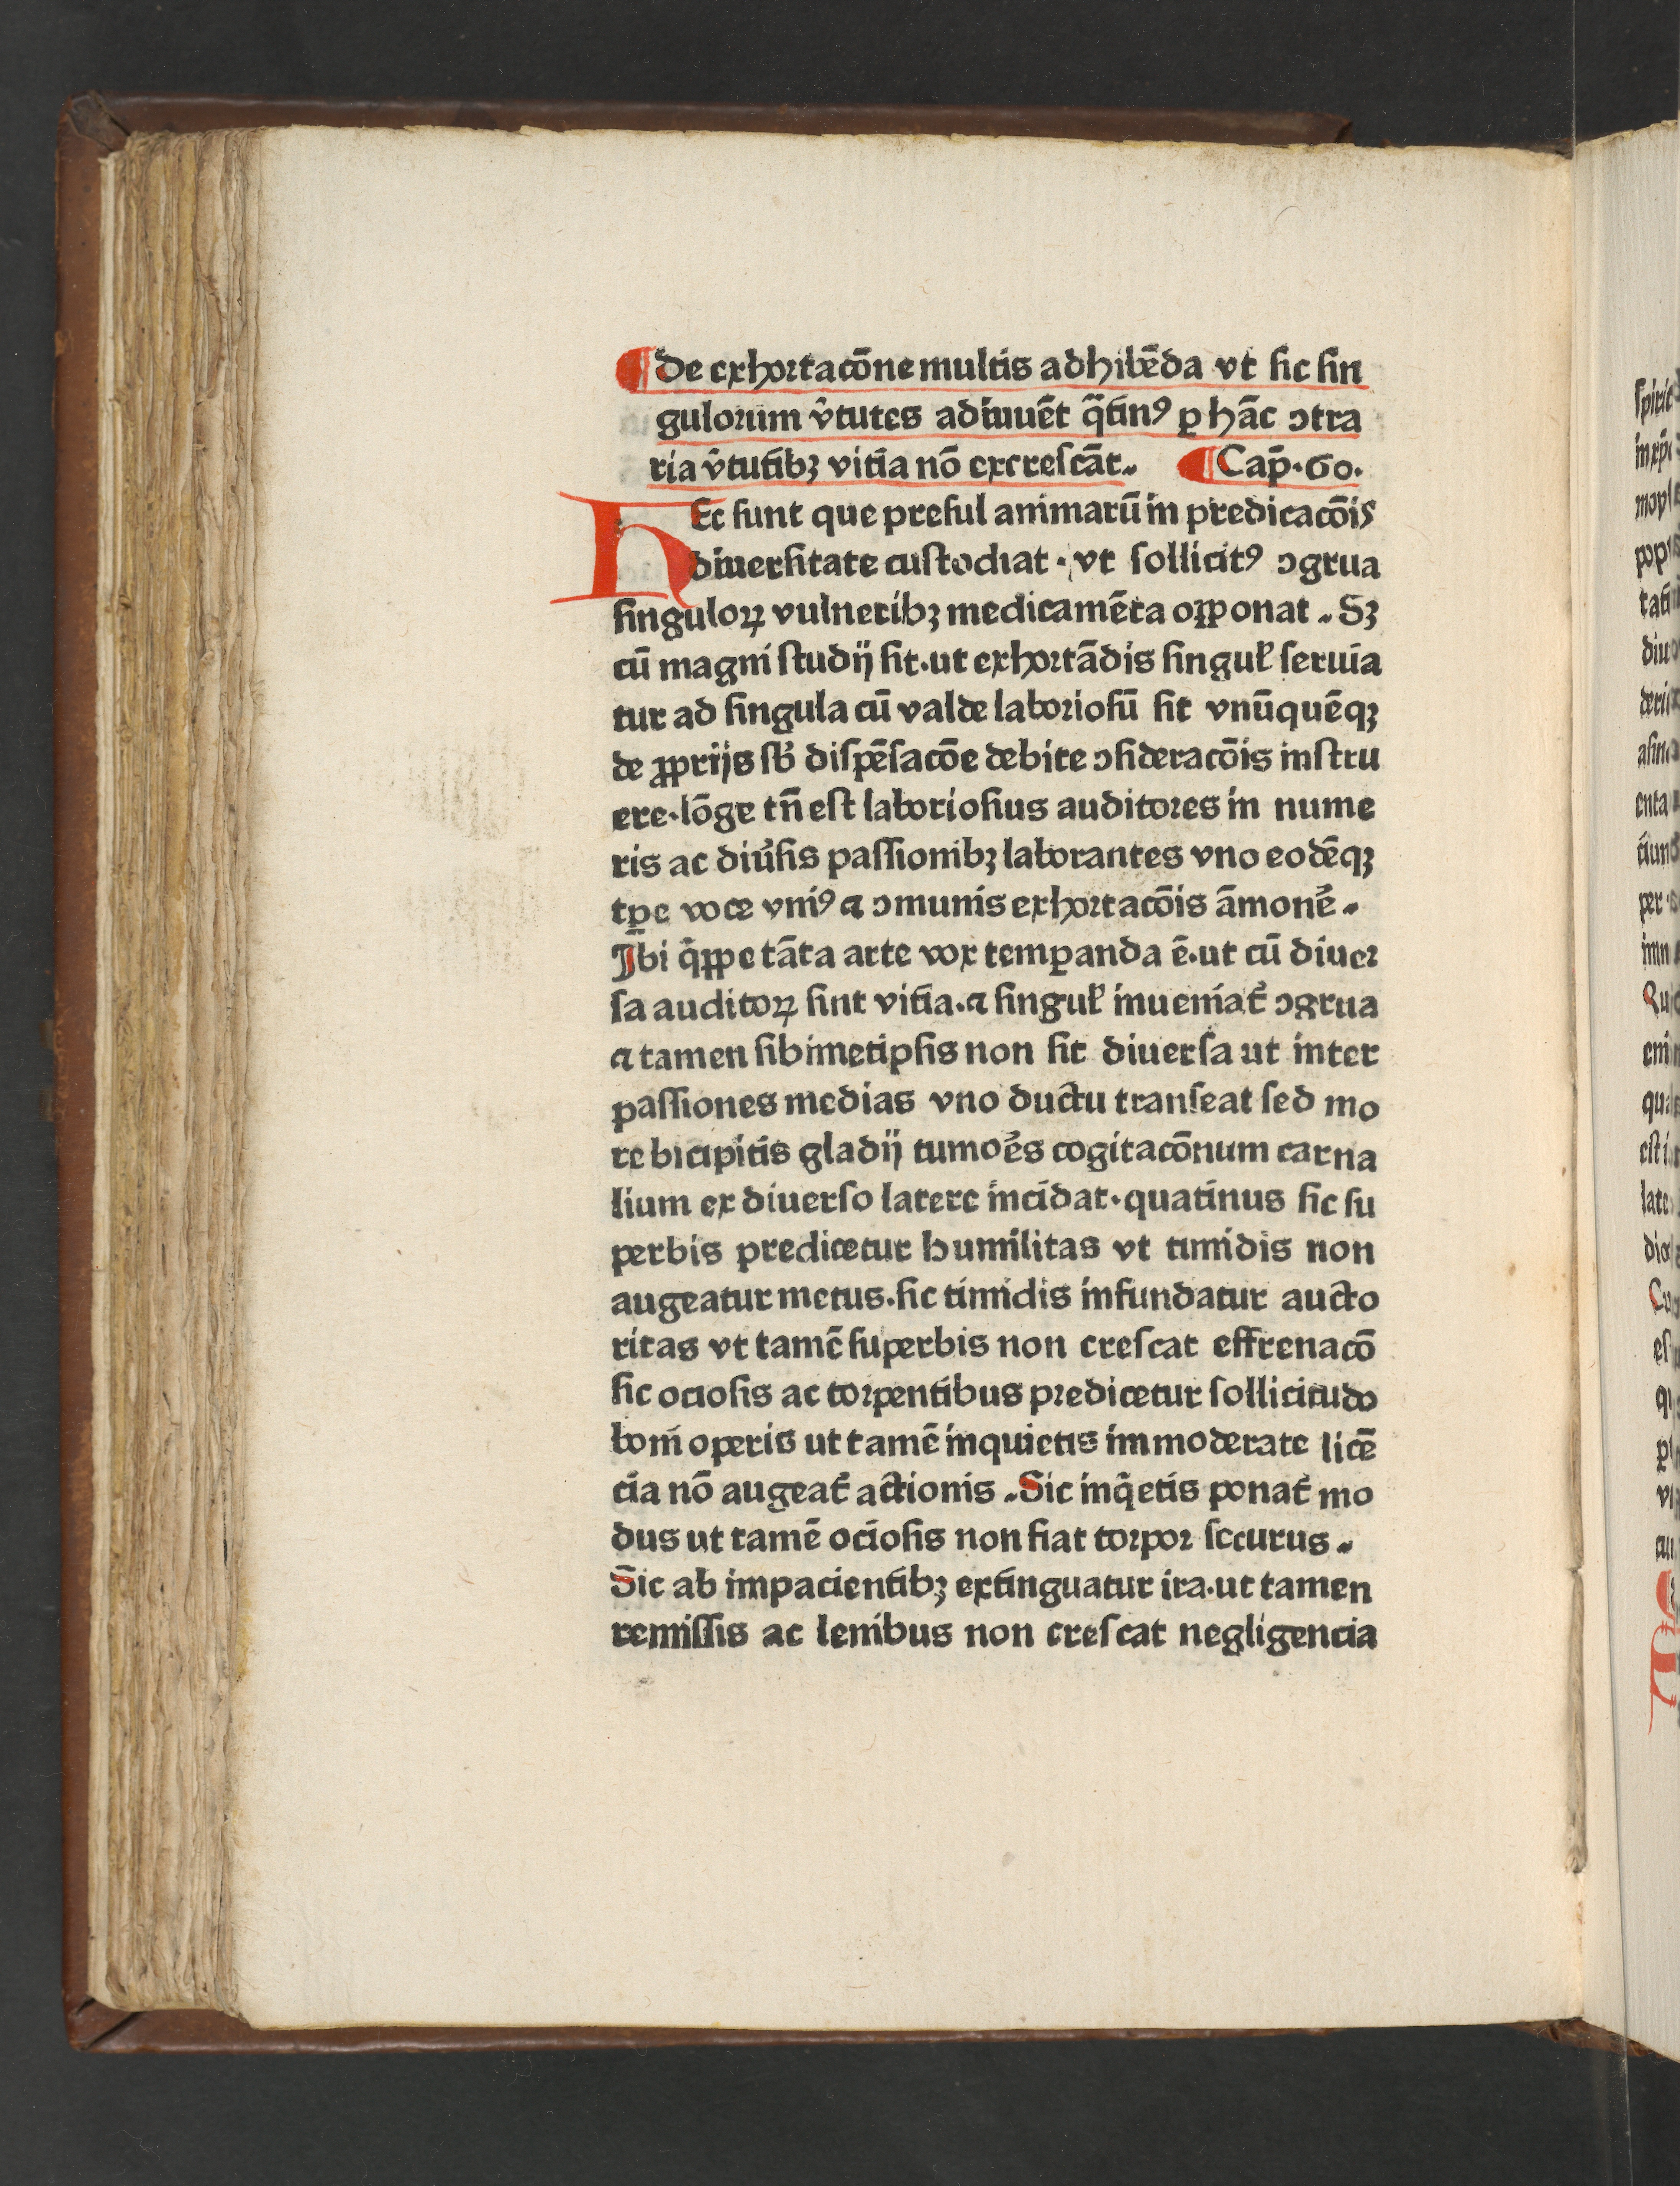 ¶ De exhortacōne multis adhibēda vt sic sin
gulorum v̄tutes adiuuēt q̄tinꝰ ꝑ hāc ↄtra
ria v̄tutibꝫ vitia nō excrescāt. ¶ Cap̄·60·
HEc sunt que presul animarū in predicacōis
diuersitate custodiat · vt sollicitꝰ ↄgrua
singuloꝝ vulneribꝫ medicamēta oꝑponat. Sꝫ
cū magni studij sit·ut exhortādis singul̓ seruia
tur ad singula cū valde laboriosū sit vnūquēqꝫ
de ꝓprijs sb̓ dispēsacōe debite ↄsideracōis instru
ere·lōge tn̄ est laboriosius auditores in nume
ris ac diu̓sis passionibꝫ laborantes vno eodēqꝫ
tꝑe voce vniꝰ ⁊ ↄmunis exhortacōis āmone᷑.
Ibi q̄ꝑpe tāta arte vox temꝑanda ē·ut cū diuer
sa auditoꝝ sint vitia·⁊ singul̓ inueniat᷑ ↄgrua
⁊ tamen sibimetipsis non sit diuersa ut inter
passiones medias vno ductu transeat sed mo
re bicipitis gladij tumo᷑es cogitacōnum carna
lium ex diuerso latere incidat·quatinus sic su
perbis predicetur humilitas vt timidis non
augeatur metus·sic timidis infundatur aucto
ritas vt tamē superbis non crescat effrenacō
sic ociosis ac torpentibus predicetur sollicitudo
boni operis ut tamē inquietis immoderate licē
cia nō augeat᷑ actionis. Sic inq̄etis ponat᷑ mo
dus ut tamē ociosis non fiat torpor securus.
Sic ab impacientibꝫ extinguatur ira·ut tamen
remissis ac lenibus non crescat negligencia